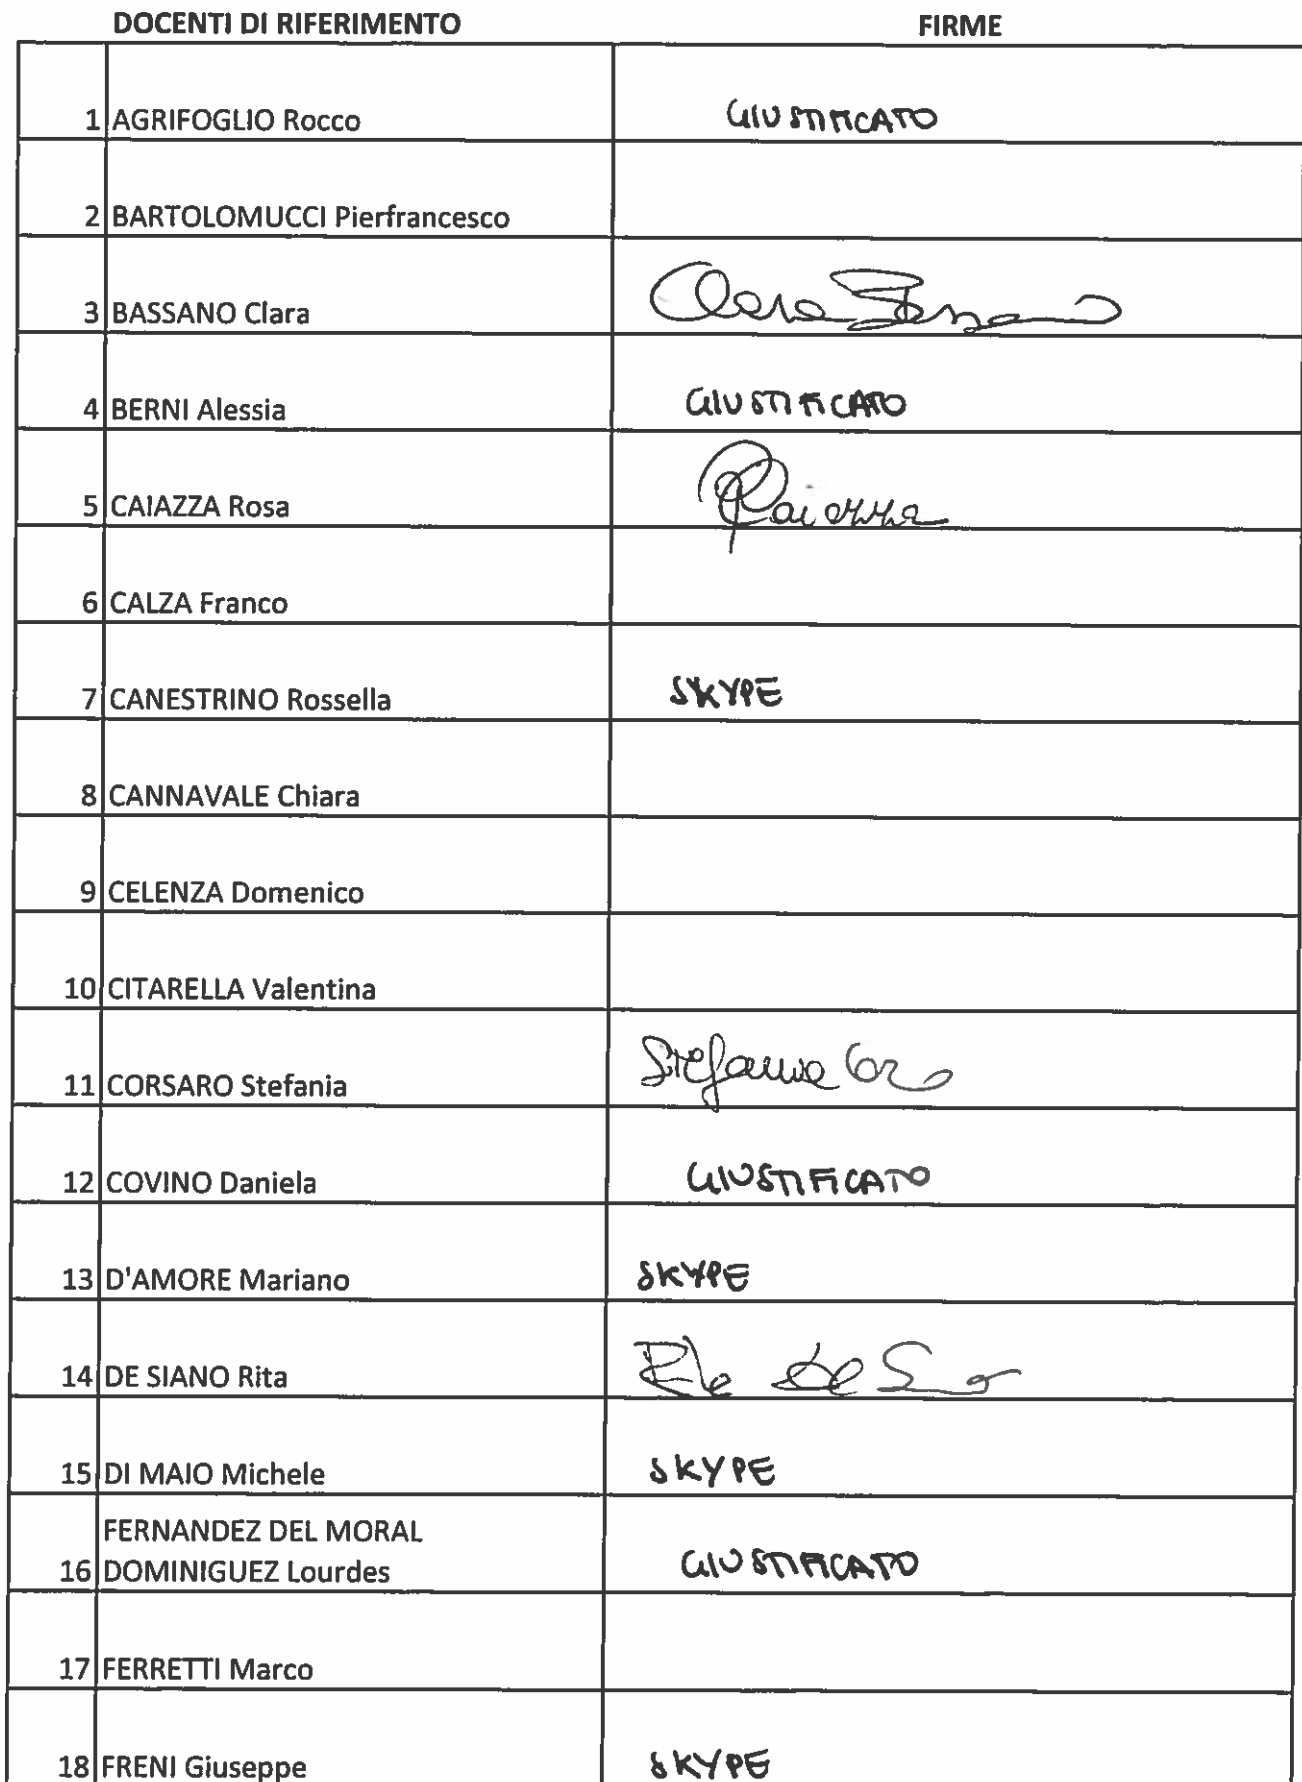 DOCENTI DI RIFERIMENTO FIRME
1 AGRIFOGLIO Rocco GIUSTIFICATO
2 BARTOLOMUCCI Pierfrancesco
3 BASSANO Clara Clara Bassano
4 BERNI Alessia GIUSTIFICATO
5 CAIAZZA Rosa RCaiazza
6 CALZA Franco
7 CANESTRINO Rossella SKYPE
8 CANNAVALE Chiara
9 CELENZA Domenico
10 CITARELLA Valentina
11 CORSARO Stefania Stefania
12 COVINO Daniela GIUSTIFICATO
13 D'AMORE Mariano SKYPE
14 DE SIANO Rita Rita De Siano
15 DI MAIO Michele SKYPE
FERNANDEZ DEL MORAL
16 DOMINIGUEZ Lourdes GIUSTIFICATO
17 FERRETTI Marco
18 FRENI Giuseppe SKYPE